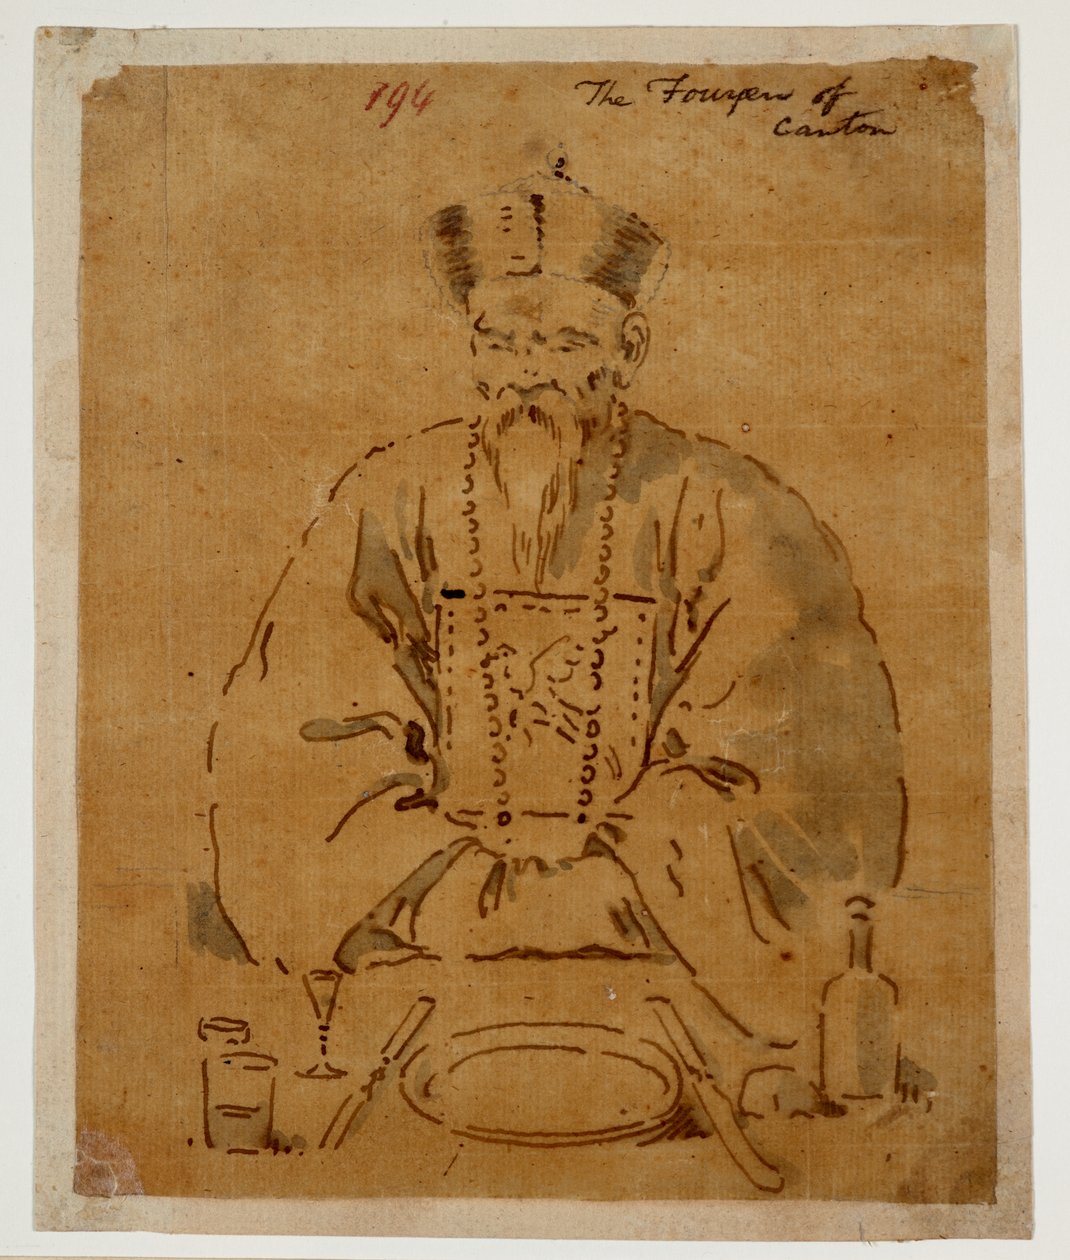 794
The Fouyen of
Canton